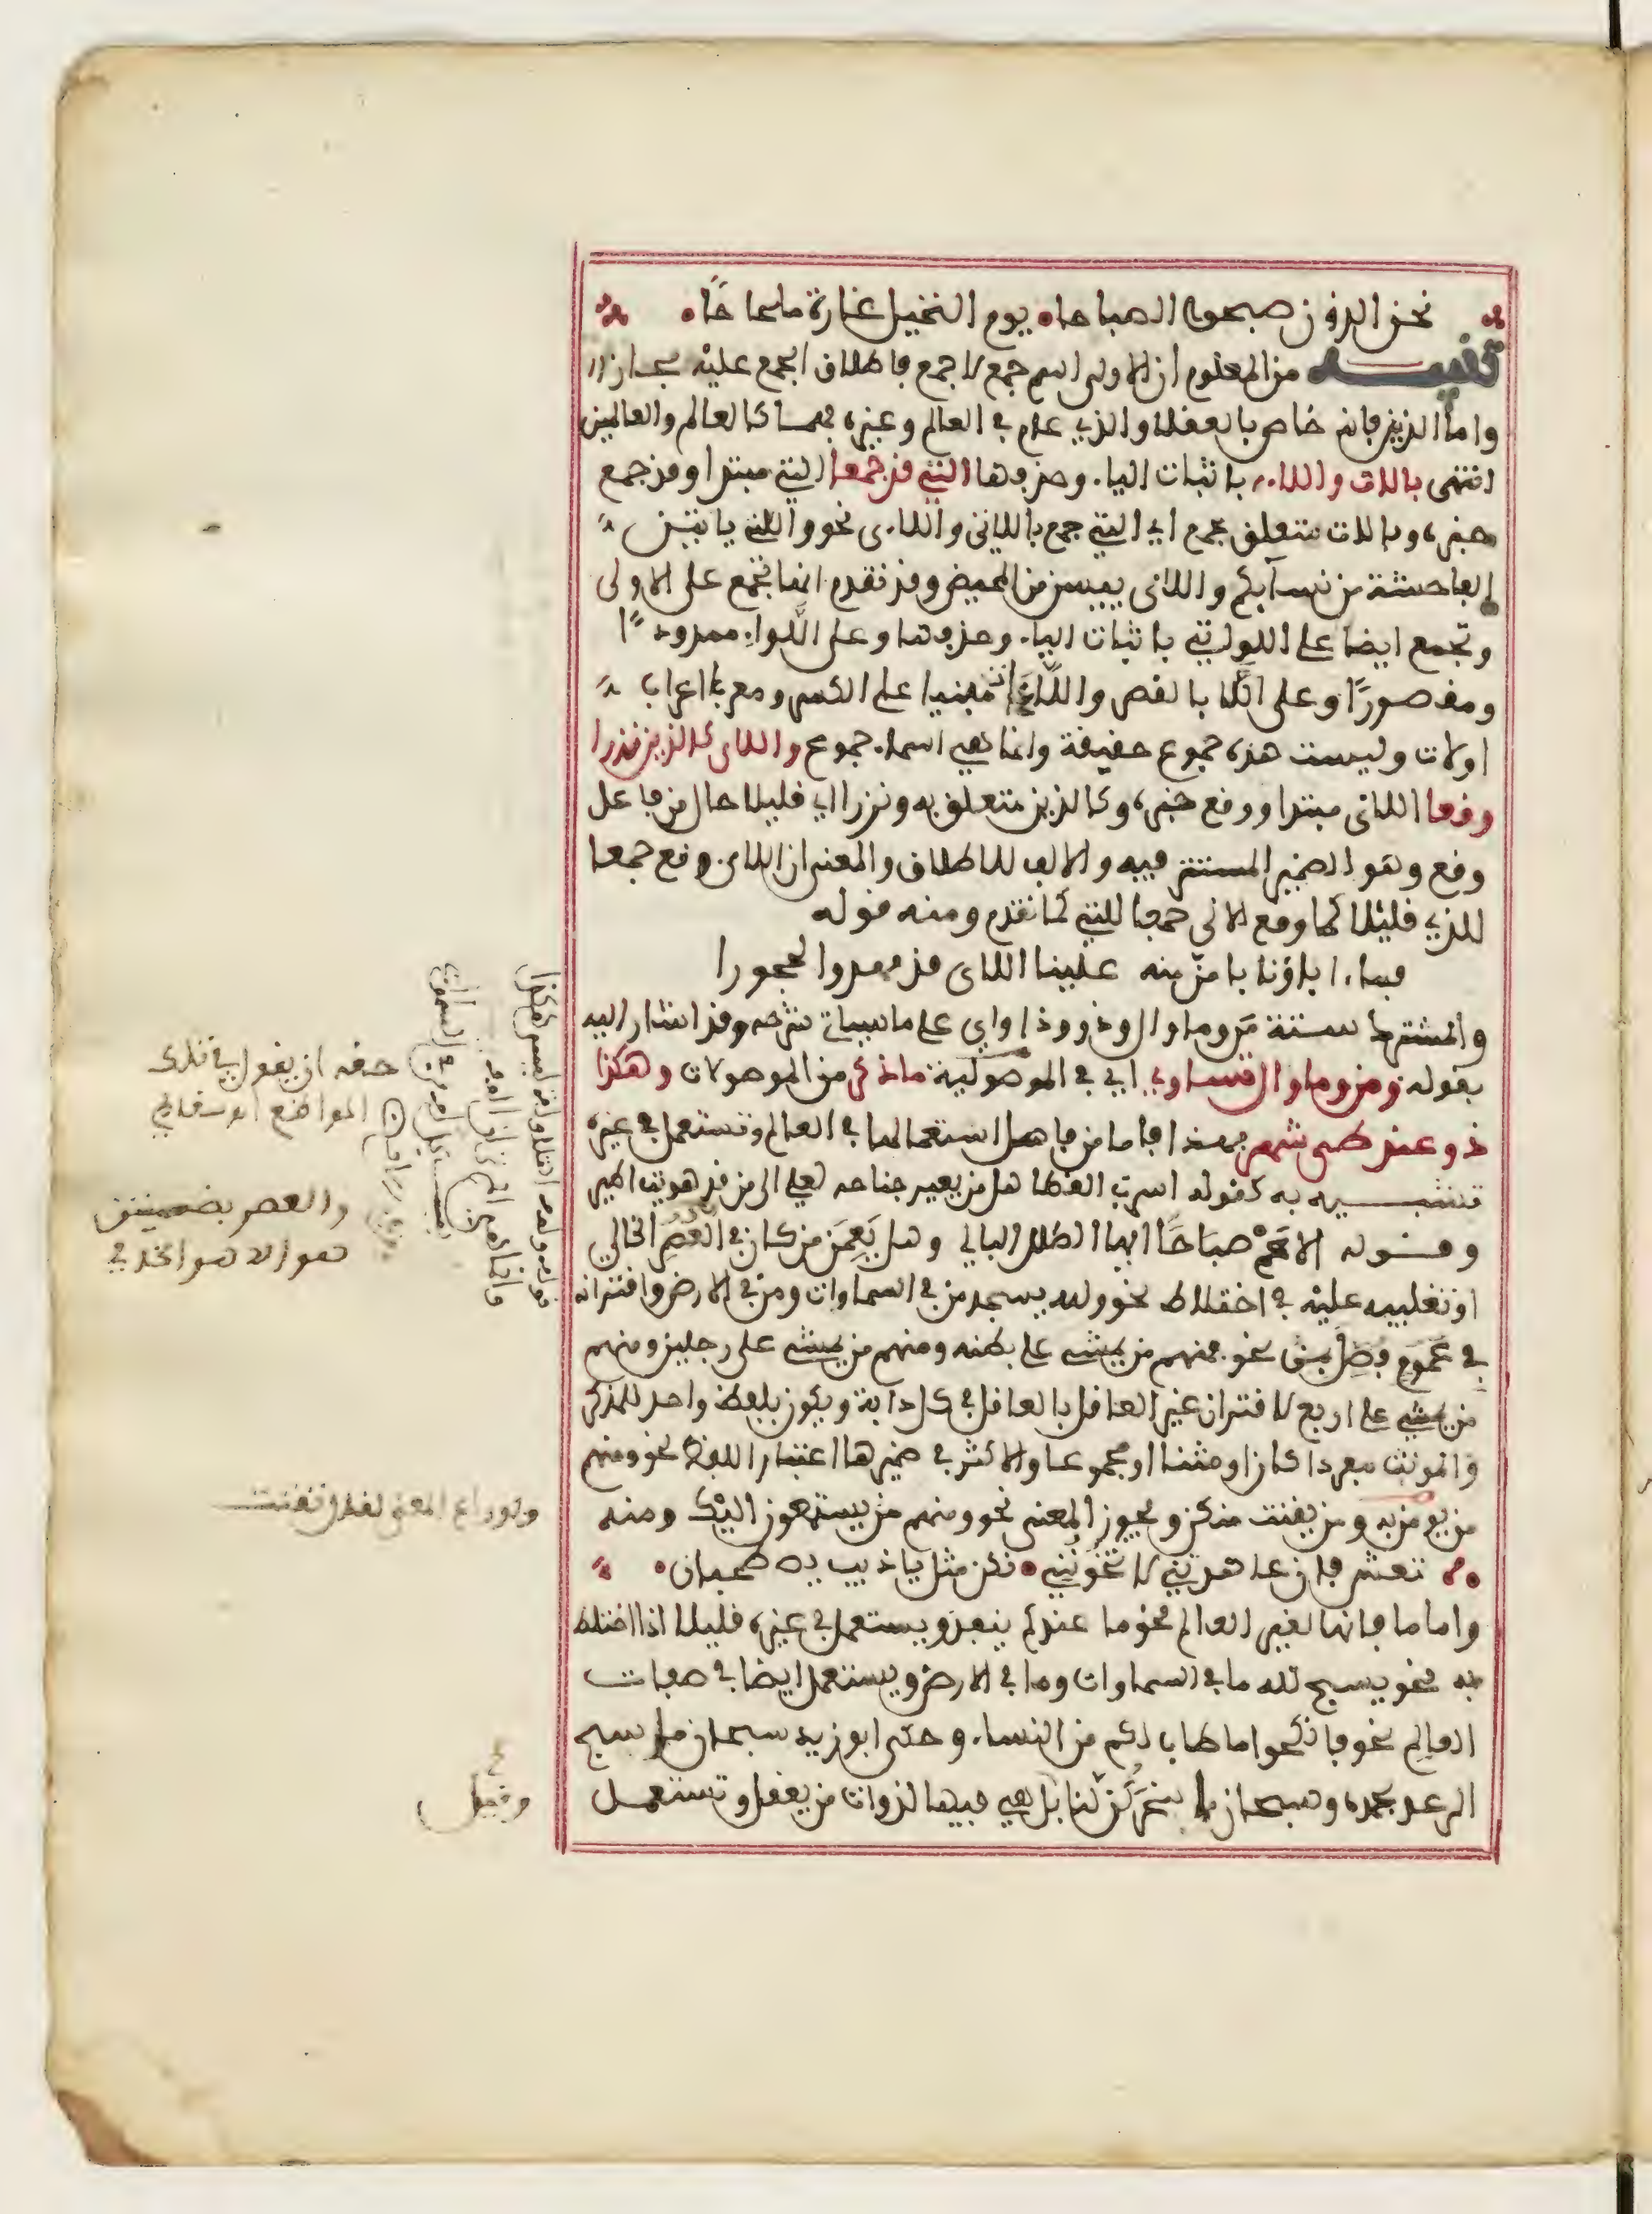 نحن الذون صبحوا الصباحا يوم النخيل غارة ملحاحًا
تنبيه من المعلوم ان الاولى اسم جمع لا جمع فاطلاق الجمع عليه مجاز
واما الذين فانه خاص بالعقلا والذي عام في العالم وغيره فهما كالعالم والعالمين
انتهى باللات واللاء باثبات الياء وحذفها التي قد جمعا التي مبتدا وقد جمع
خبره وباللات متعلق بجمع اي التي جمع باللاتي واللاءى نحو واللتي ياتين
الفاحشة من نسآبكم واللائى ييسن من المحيض وقد تقدم انها تجمع على الاولى
وتجمع ايضا على اللواتي باثبات الياء وحذفها وعلى اللَّواء ممدودًا
ومقصورًا وعلى اللَّا بالقصر واللَّاءَات مبنيا على الكسر ومعربا اعراب
اولات وليست هذه جموع حقيقة وانما هي اسماء جموع واللاى كالذين نذرا
وقعا اللائى مبتدا ووقع خبره وكالذين متعلق به ونزرا اي قليلا حال من فاعل
وقع وهو الضمير المستتر فيه والالف للاطلاق والمعنى ان اللاى وقع جمعا
للذي قليلا كما وقع الالى جمعا للتي كما تقدم ومنه قوله
فماء اباؤنا بامنّ منه علينا اللاى قد مهدوا الحجورا
والمشترك ستة مَن وما وال وذو وذا واي على ما سياتي شرحه وقد اشار اليه
بقوله ومن وما وال تساوي اي في الموصولية ما ذكر من الموصولات وهكذا
ذو عند طيى شهر بهذا فاما من فاصل استعمالها في العالم وتستعمل في غيره
تشبيه به كقوله اسرب القطا هل من يعير جناحه لعلي الى من قد هويت اطير
وقوله الا عَمْ صباحًا ايها الطلل البالي وهل يَعِمَن من كان في العُصُر الخالي
او تغليبه عليه في اختلاط نحو ولله يسجد من في السماوات ومن في الارض واقترانه
في عموم فصل بمن نحو فمنهم من يمشي على بطنه ومنهم من يمشي على رجلين ومنهم
من يمشي على اربع لاقتران غير العاقل بالعاقل في كل دابة ويكون بلفظ واحد للمذكر
والمونث مفردا كان او مثنا او مجموعا والاكثر في ضميرها اعتبار اللفظ نحو ومنهم
من يومن به ومن يقنت منكن ويجوز المعنى نحو ومنهم من يستمعون اليك ومنه
تعش فان عاهدتني لا تخونني نكن مثل يا ذيب يصطحبان
واما ما فانها لغير العالم نحو ما عندكم ينفد ويستعمل في غيره قليلا اذا اختلط
به نحو يسبح لله ما في السماوات وما في الارض ويستعمل ايضا في صفات
العالم نحو فانكحوا ما طاب لكم من النساء وحكى ابو زيد سبحان ما سبح
الرعد بحمده وسبحان ما سخركن لنا بل هي فيها لذوات من يعقل وتستعمل
حقه ان يقول في تلك
المواضع
والعصر بضمتين
هو الا هو الخدي
ولو راع المعنى لقال تقنت
وقيل